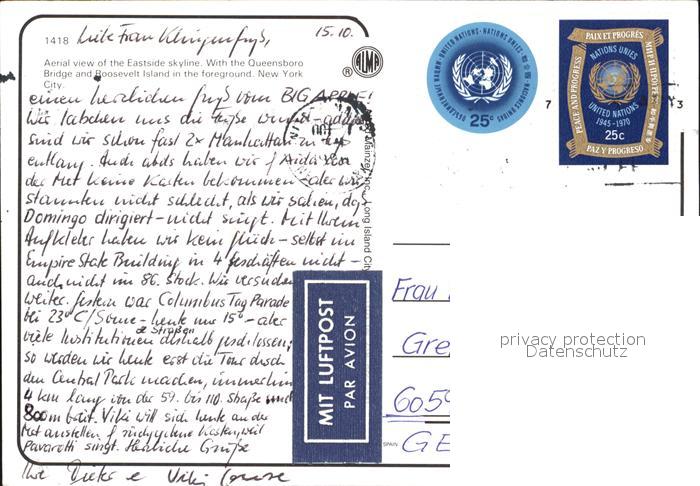 1418 Liebe Frau Klingenfuß, 15.10.
Aerial view of the Eastside skyline. With the Queensboro
Bridge and Roosevelt Island in the foreground. New York
City.
® ALMA
einen herzlichen Gruß vom BIG APPLE!
Wir uns die Füße wund
sind wir schon fast 2x Manhattan zu
entlang. Auch abds haben wir f. Aida von
der Met keine Karten bekommen - aber wir
staunten nicht schlecht, als wir sahen, daß
Domingo dirigiert - nicht singt. Mit Ihrem
Aufkleber haben wir kein Glück - selbst im
Empire State Building in 4 Geschäften nicht -
auch nicht im 86. Stock. Wir versuchen
weiter. Gestern war Columbus Tag Parade
bei 23° C/Sonne - heute nur 15° - aber
viele Institutionen & Straßen deshalb geschlossen;
so werden wir heute erst die Tour durch
den Central Park machen, immerhin
4 km lang von der 59. bis 110. Straße und
800m breit. Viki will sich heute an der
Met anstellen f. Karten, weil
Pavarotti singt. Herzliche Grüße
Ihre Dieter e Viki
Mainzer, Inc., Long Island City
MIT LUFTPOST
PAR AVION
SPAIN
UNITED NATIONS · NATIONS UNIES
NACIONES UNIDAS
25c
PAIX ET PROGRÈS
PEACE AND PROGRESS
МИР И ПРОГРЕСС
PAZ Y PROGRESO
NATIONS UNIES
UNITED NATIONS
1945-1970
25c
7 3
Frau
Gre
605
GE
privacy protection
Datenschutz